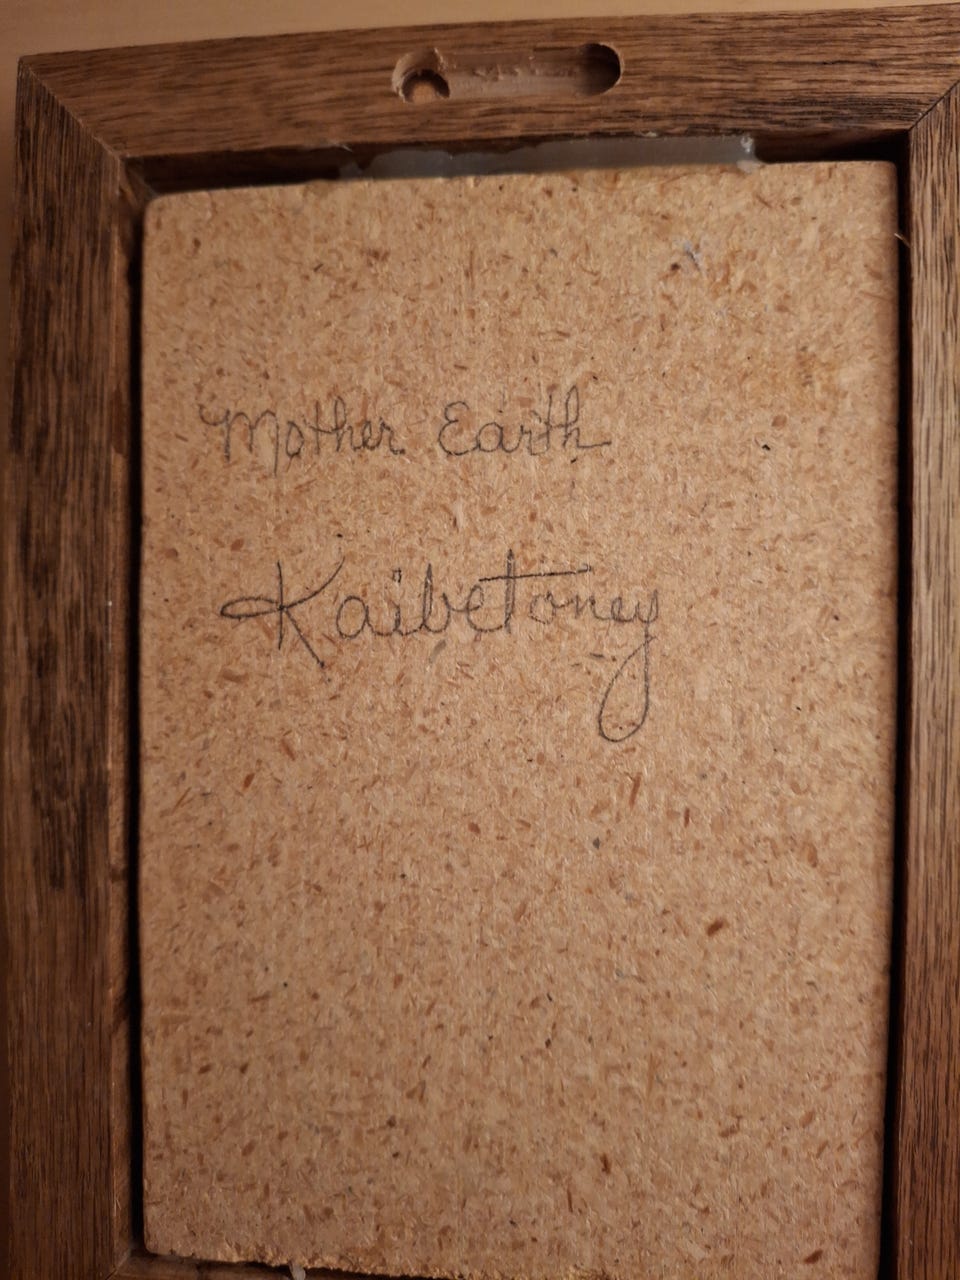 Mother Earth
Kaibetoney